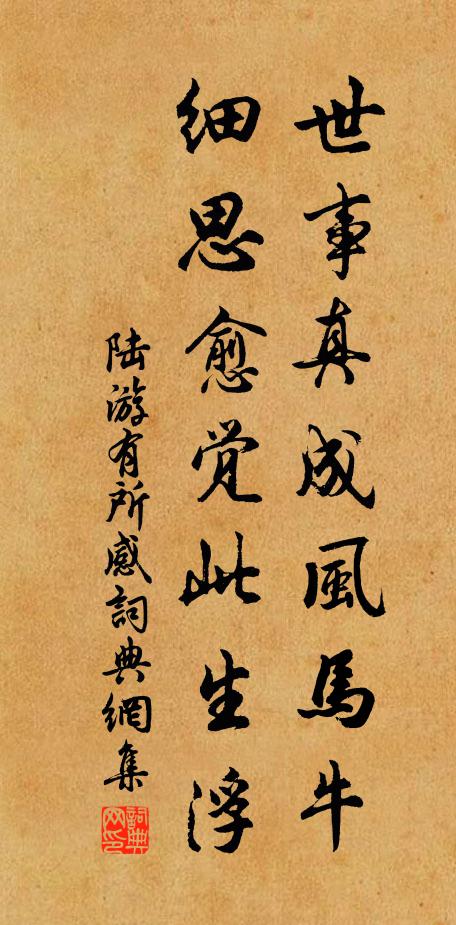 世事真成風馬牛
细思愈觉此生浮
陆游有所感詞典網集
詞典网印